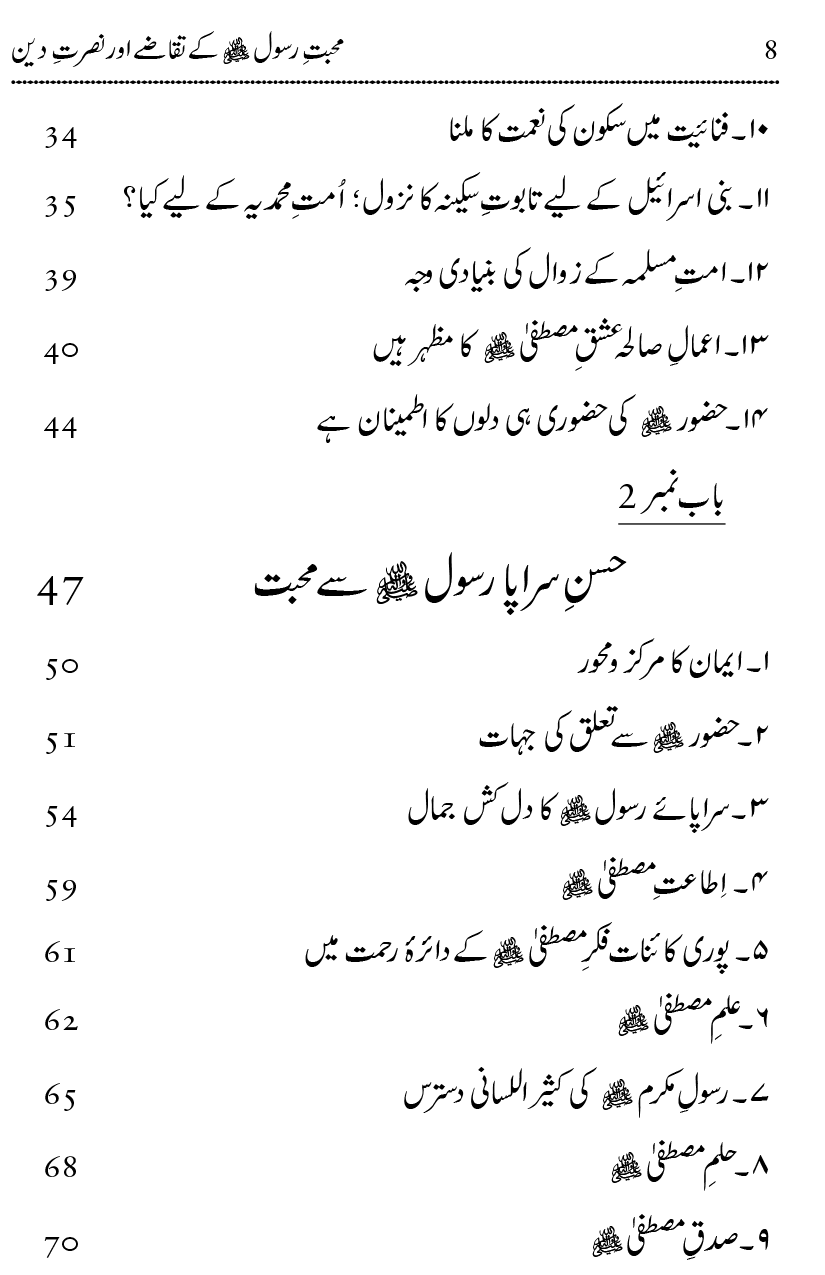 محبتِ رسول ﷺ کے تقاضے اور نصرتِ دین 8
۱۰۔ فنائیت میں سکون کی نعمت کا ملنا 34
۱۱۔ بنی اسرائیل کے لیے تابوتِ سکینہ کا نزول؛ اُمتِ محمدیہ کے لیے کیا؟ 35
۱۲۔ امتِ مسلمہ کے زوال کی بنیادی وجہ 39
۱۳۔ اعمالِ صالحہ عشقِ مصطفیٰ ﷺ کا مظہر ہیں 40
۱۴۔ حضور ﷺ کی حضوری ہی دلوں کا اطمینان ہے 44
باب نمبر 2
حسنِ سراپا رسول ﷺ سے محبت 47
۱۔ ایمان کا مرکز و محور 50
۲۔ حضور ﷺ سے تعلق کی جہات 51
۳۔ سراپائے رسول ﷺ کا دل کش جمال 54
۴۔ اِطاعتِ مصطفیٰ ﷺ 59
۵۔ پوری کائنات فکرِ مصطفیٰ ﷺ کے دائرۂ رحمت میں 61
۶۔ علمِ مصطفیٰ ﷺ 62
۷۔ رسولِ مکرم ﷺ کی کثیر اللسانی دسترس 65
۸۔ حلمِ مصطفیٰ ﷺ 68
۹۔ صدقِ مصطفیٰ ﷺ 70